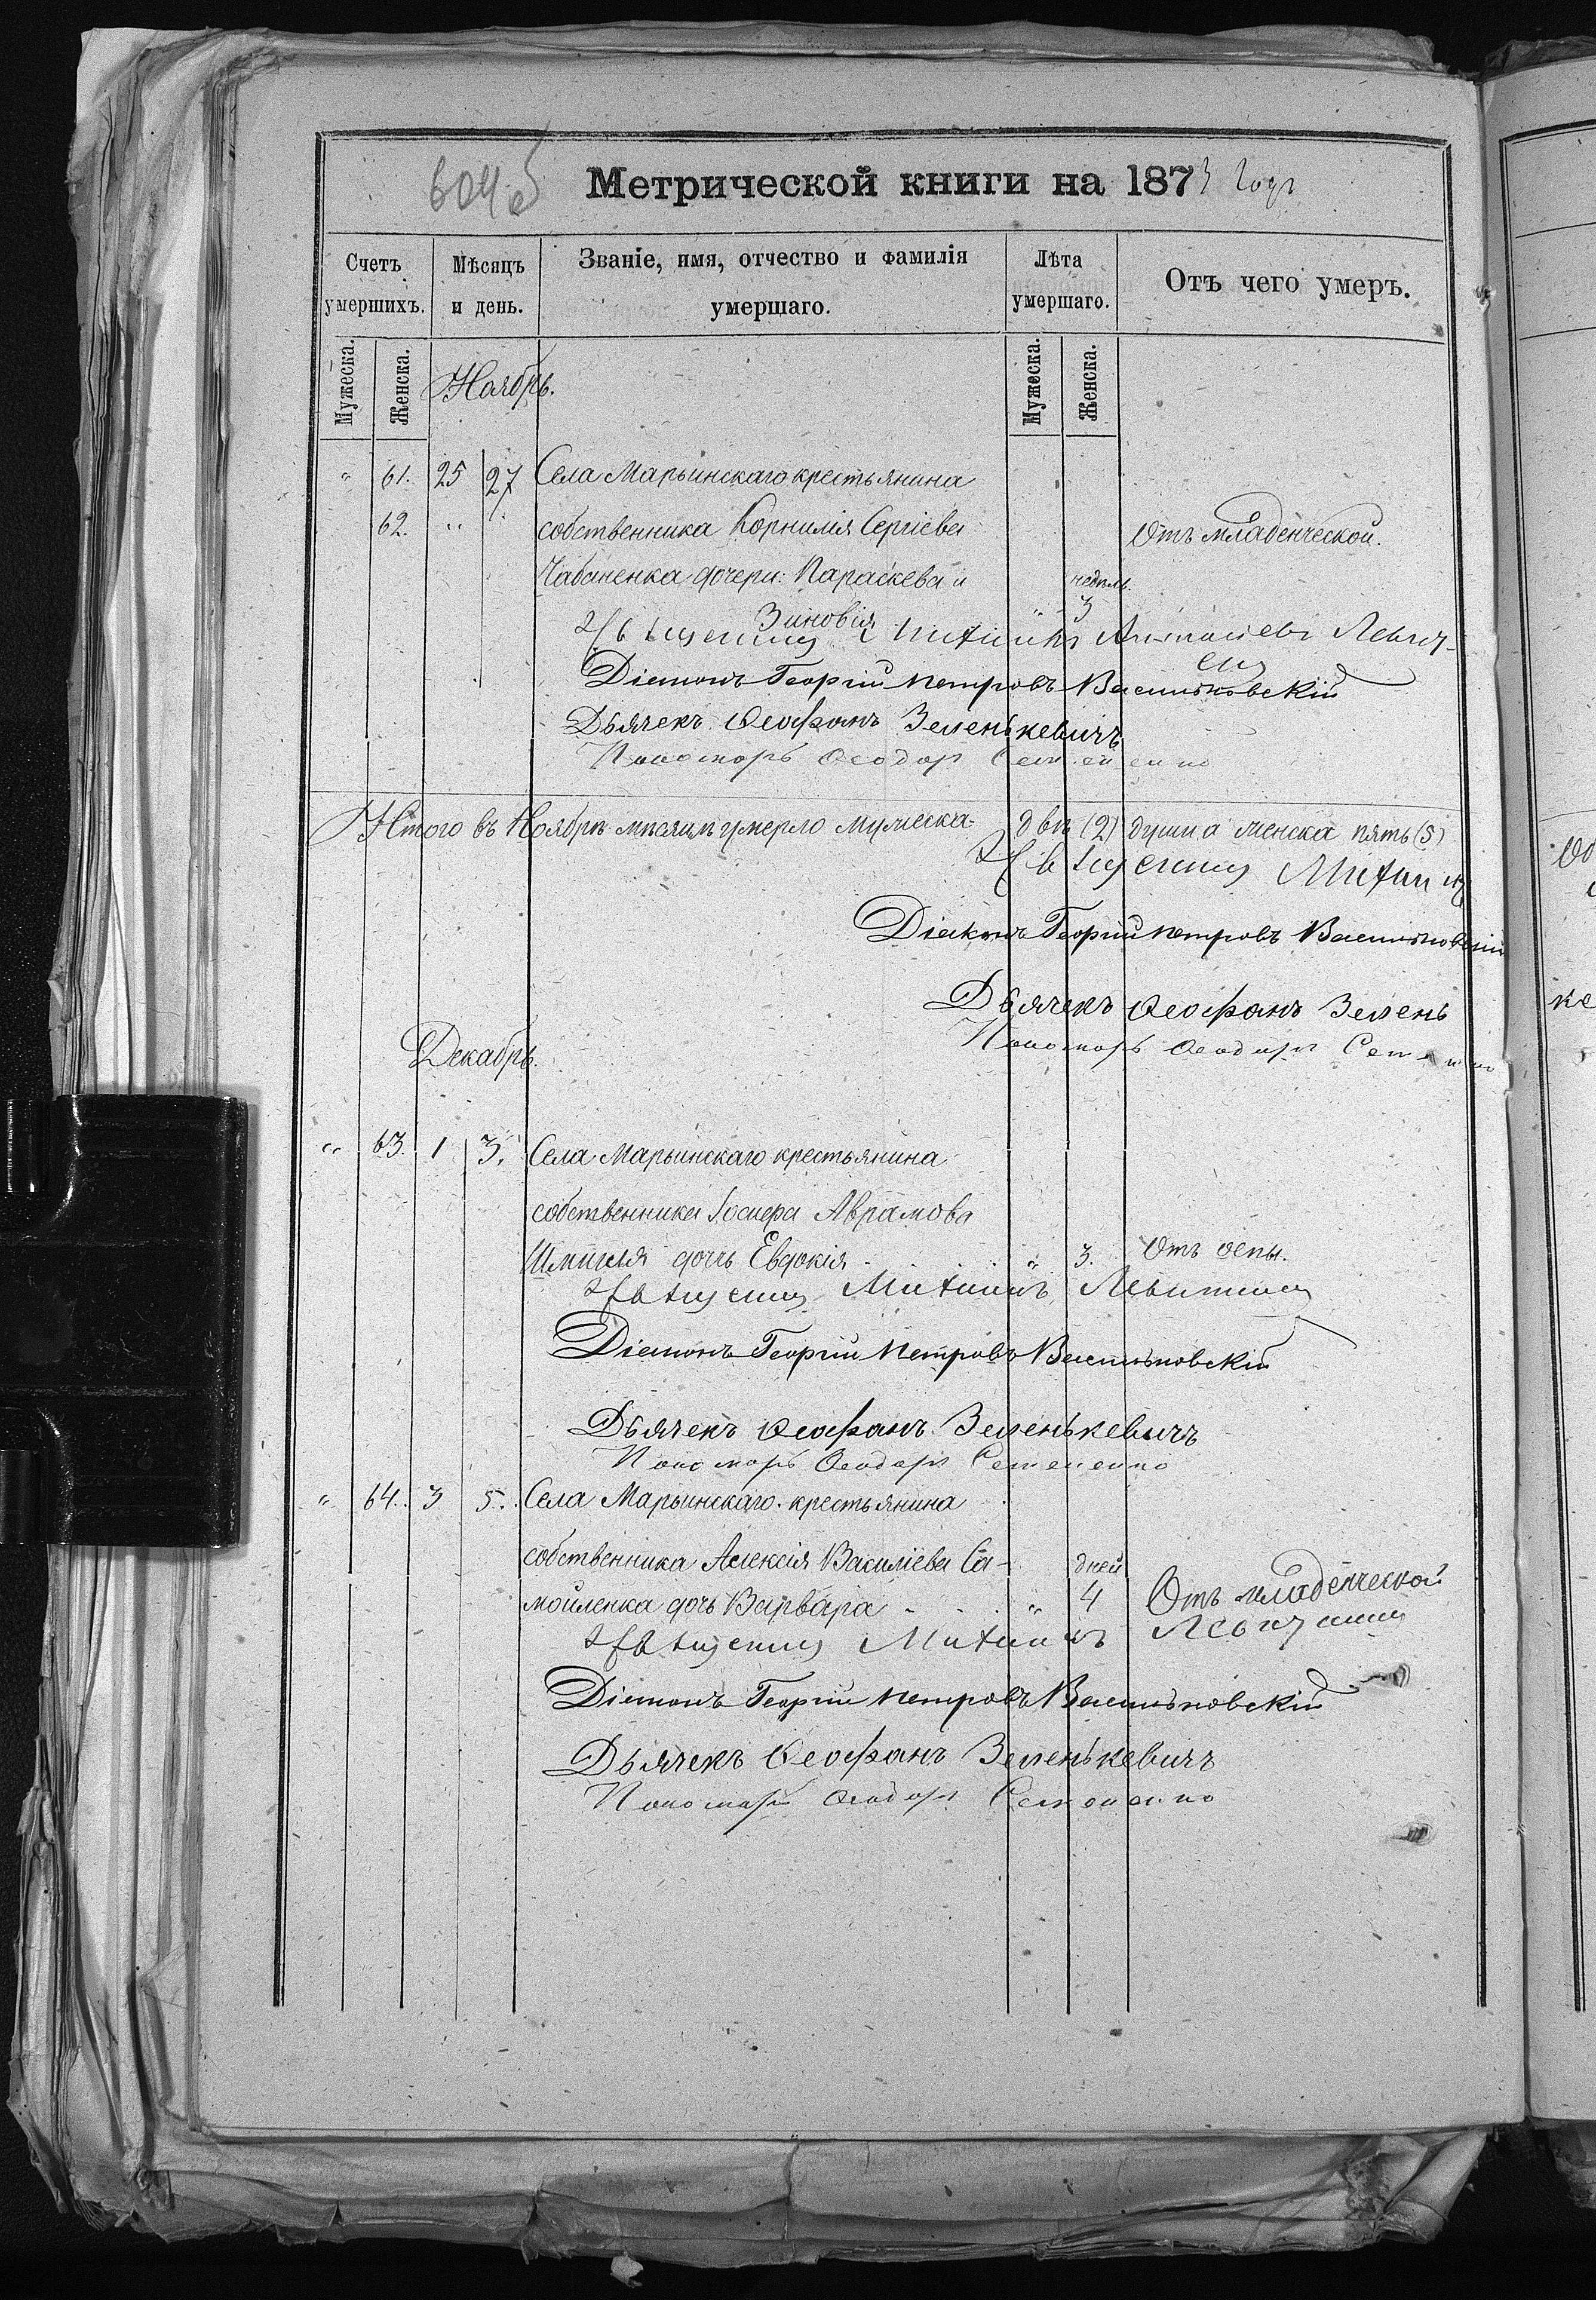 604 об
Метрической книги на 1873 годъ
Счетъ умершихъ.
Мѣсяцъ и день.
Званіе, имя, отчество и фамилія умершаго.
Лѣта умершаго.
Отъ чего умеръ.
Мужеска.
Женска.
Мужеска.
Женска.
Ноябрь.
" 61. 25 27 Села Марьинскаго крестьянина
62. " " собственника Корнилія Сергіева Отъ младенческой.
Чабаненка дочери: Параскева и недѣль.
Зиновія " 3
Священникъ Михаилъ Левит-
Діаконъ Георгій Петровъ Васильковскій
Дьячекъ Ѳеофанъ Зеленькевичъ
Пономарь Ѳеодоръ Семененко
Итого въ Ноябрѣ мѣсяцѣ умерло мужеска двѣ (2) души а женска пять (5)
Священникъ Михаилъ
Діаконъ Георгій Петровъ Васильковскій
Дьячекъ Ѳеофанъ Зелень
Пономарь Ѳеодоръ Семененко
Декабрь.
" 63. 1 3. Села Марьинскаго крестьянина
собственника Іосифа Аврамова
дочь Евдокія " 3. Отъ оспы.
Священникъ Михаилъ
Діаконъ Георгій Петровъ Васильковскій
Дьячекъ Ѳеофанъ Зеленькевичъ
Пономарь Ѳеодоръ Семененко
" 64. 3 5. Села Марьинскаго крестьянина
собственника Алексія Василіева Са- дней
мойленка дочь Варвара " 4 Отъ младенческой
Священникъ Михаилъ
Діаконъ Георгій Петровъ Васильковскій
Дьячекъ Ѳеофанъ Зеленькевичъ
Пономарь Ѳеодоръ Семененко
Об
ке